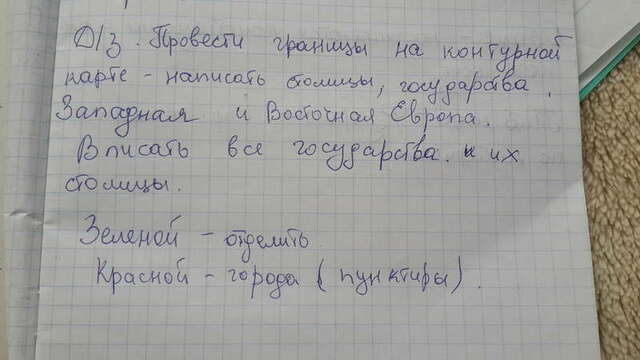 Д/з. Провести границы на контурной
карте - написать столицы, государства.
Западная и Восточная Европа.
Вписать все государства и их
столицы.
Зеленой - отделить.
Красной - города (пунктиры).